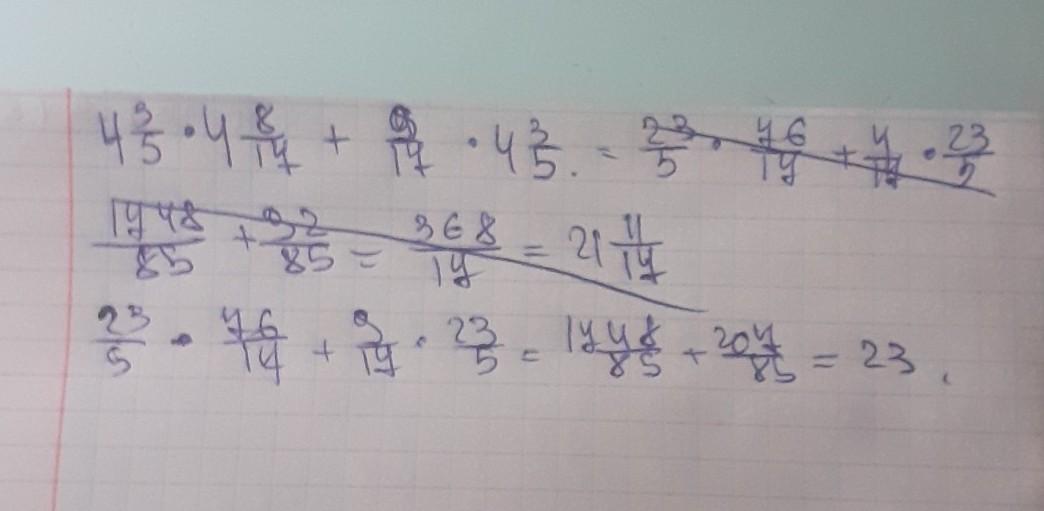 4 3/5 · 4 8/17 + 9/17 · 4 3/5 . = 23/5 · 76/17 + 4/17 · 23/5
1748/85 + 92/85 = 368/17 = 21 11/17
23/5 · 76/17 + 9/17 · 23/5 = 1748/85 + 207/85 = 23 .